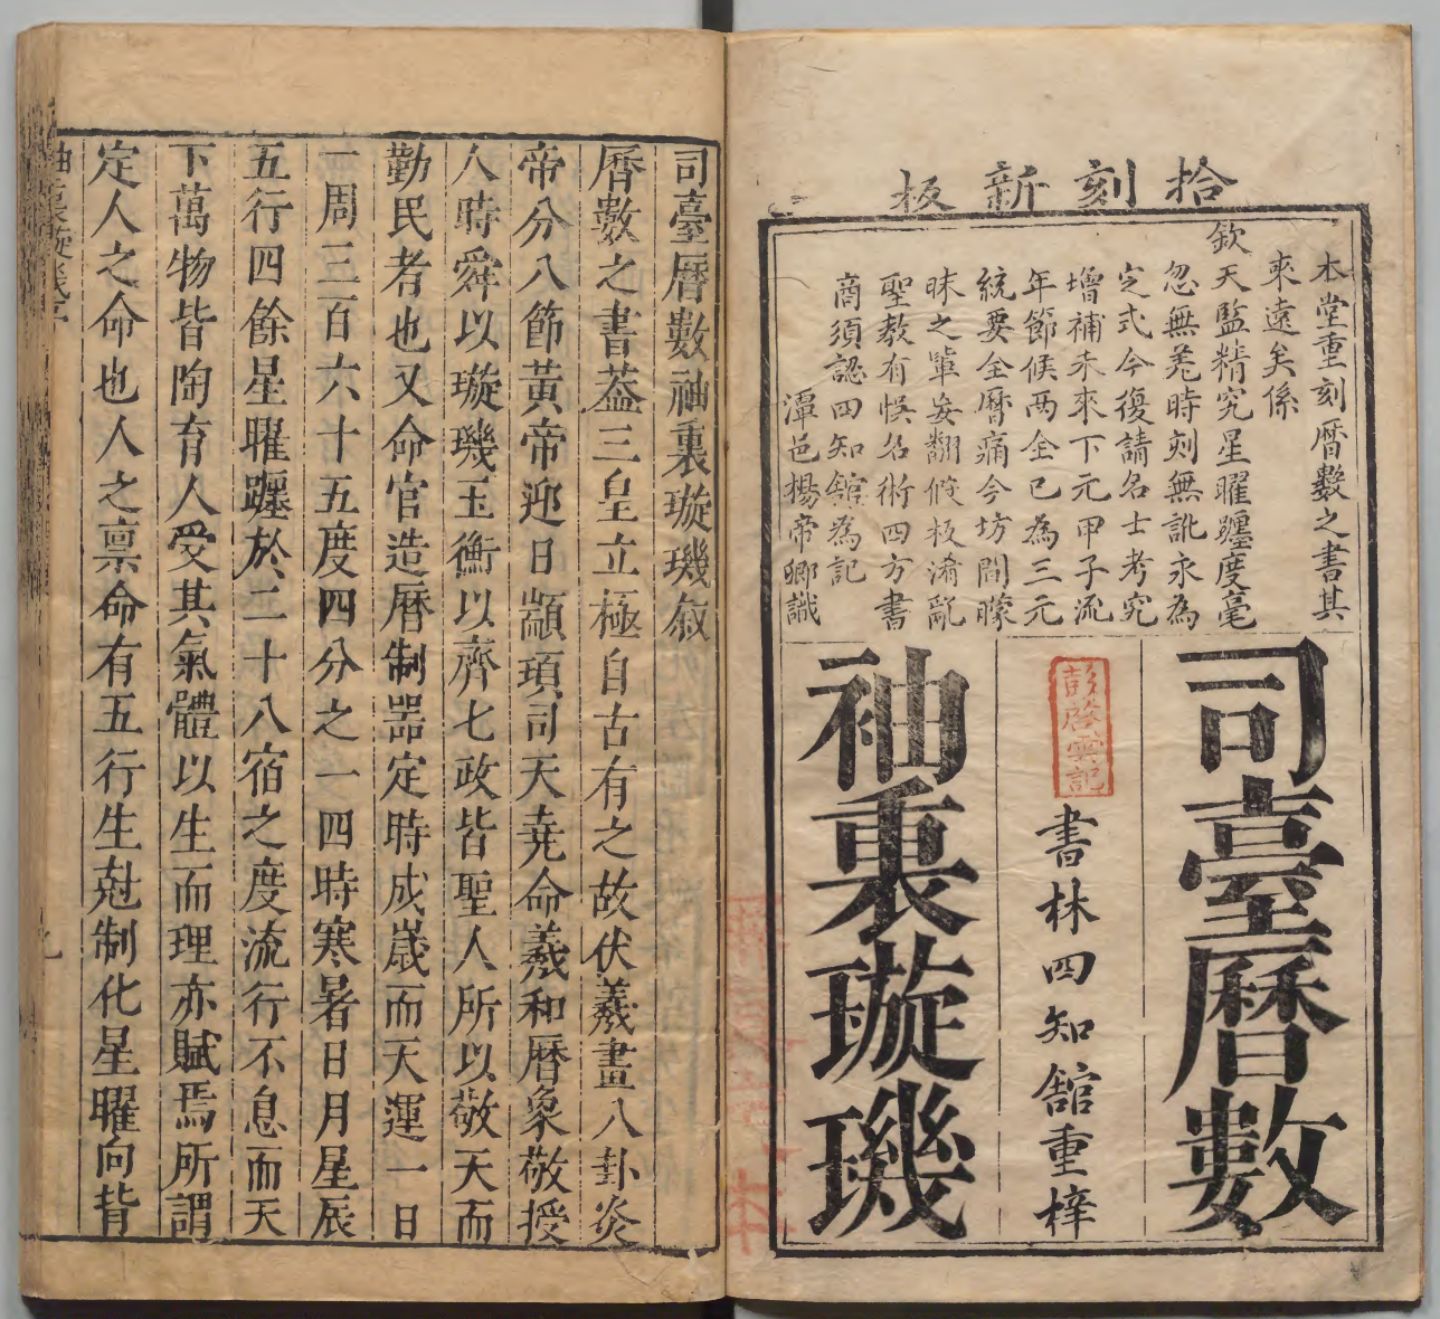 拾刻新板
本堂重刻曆數之書其
來遠矣係
欽天監精究星曜躔度毫
忽無差時刻無訛永為
定式今復請名士考究
增補未來下元甲子流
年節候两全已為三元
統要全曆痛今坊間矇
昧之輩妄翻假板淆亂
聖教有悞名術四方書
商須認四知舘為記
潭邑楊帝卿識
司臺曆數
彭啓雲記
書林四知舘重梓
袖裏璇璣
司臺曆數袖裏璇璣叙
曆數之書葢三皇立極自古有之故伏羲畫八卦炎
帝分八節黃帝迎日顓頊司天尭命羲和曆象敬授
人時舜以璇璣玉衡以齊七政皆聖人所以敬天而
勤民者也又命官造曆制噐定時成嵗而天運一日
一周三百六十五度四分之一四時寒暑日月星辰
五行四餘星曜躔於二十八宿之度流行不息而天
下萬物皆陶育人受其氣體以生而理亦賦焉所謂
定人之命也人之禀命有五行生尅制化星曜向背